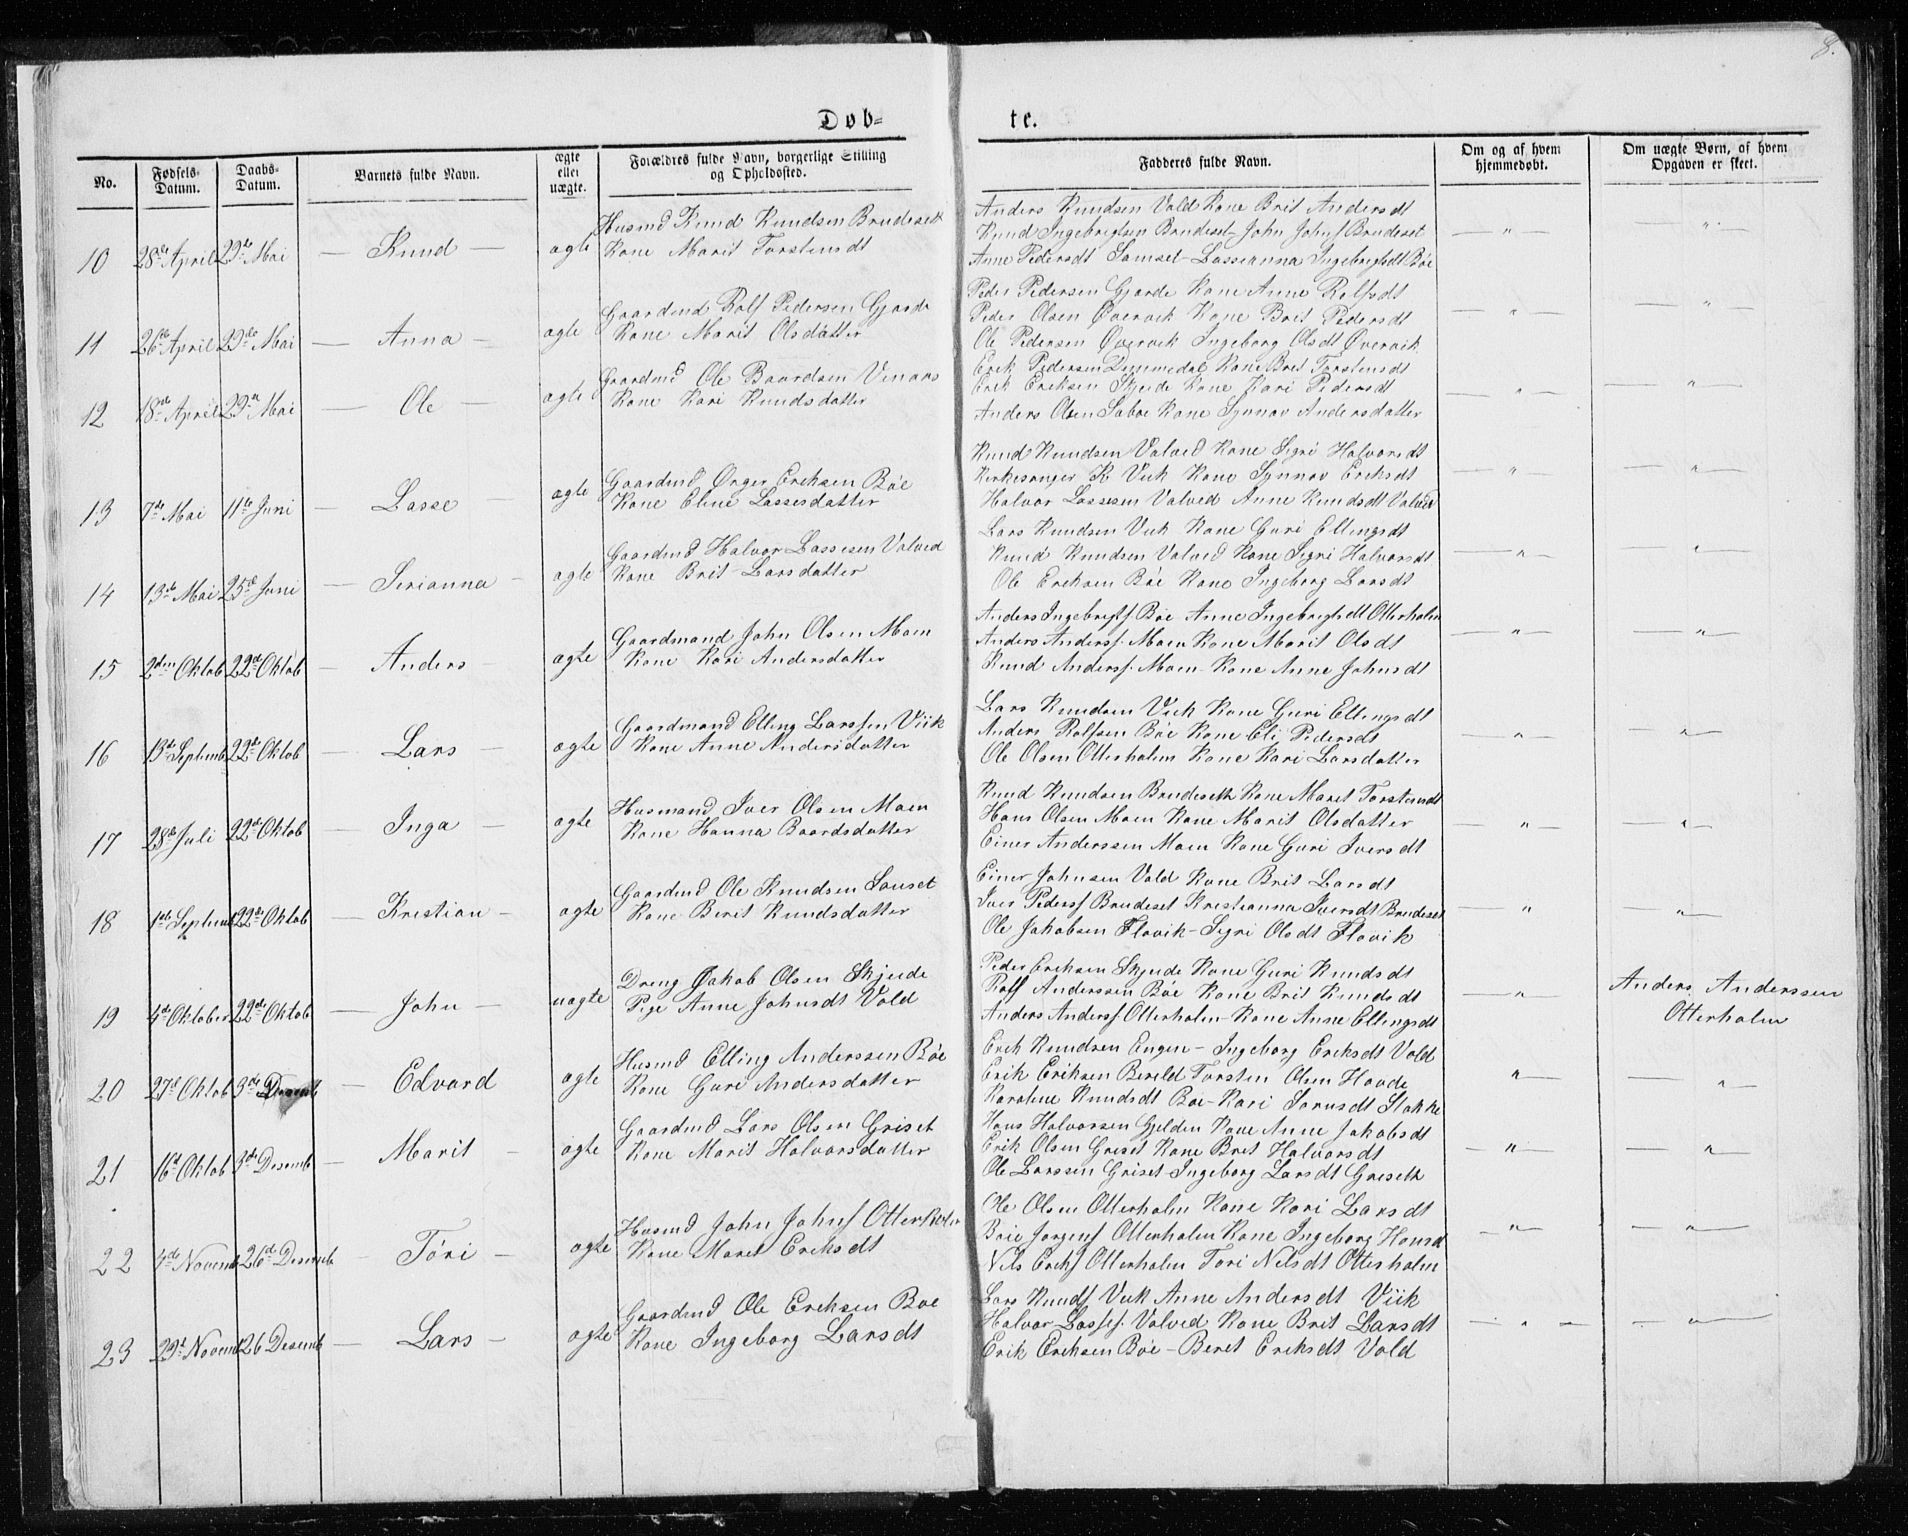 8.
Døb= te.
No. Fødsels-Datum. Daabs-Datum. Barnets fulde Navn. ægte eller uægte. Forældres fulde Navn, borgerlige Stilling og Opholdssted. Fadderes fulde Navn. Om og af hvem hjemmedøbt. Om uægte Børn, af hvem Opgaven er skeet.
Husmd Knud Knudsen Brudeseth Anders Knudsen Vold Kone Brit Andersdt
10 28de April 29de Mai — Knud — ægte Kone Marit Torstensdt Knud Ingebrigtsen Brudeset John Johnf Brudeset — " — — " —
Anne Pedersdt Samset Lasseanna Ingebrigtsdt Bøe
Gaardmd Rolf Pedersen Gjørde Peder Pedersen Gjørde Kone Anne Rolfsdt
11 26de April 29de Mai — Anna — ægte Kone Marit Olsdatter Peder Olsen Øvervik Kone Brit Pedersdt — " — — " —
Ole Pedersen Øvervik Ingeborg Olsdt Øvervik
Gaardmd Ole Baardsen Venaas Erik Pedersen Dummedal Kone Brit Torstensdt
12 18de April 29de Mai — Ole — ægte Kone Kari Knudsdatter Erik Eriksen Skjeide Kone Kari Pedersdt — " — — " —
Anders Olsen Sæbøe Kone Synnøv Andersdatter
Knud Knudsen Valved Kone Sigri Halvorsdt
Gaardmd Ørger Eriksen Bøe Kirkesanger K Viik Kone Synnøv Eriksdt
13 7de Mai 11te Juni — Lasse — ægte Kone Eline Lassesdatter Halvor Lassesen Valved Anne Knudsdt Valved — " — — " —
Gaardmd Halvor Lassesen Valved Lars Knudsen Viik Kone Guri Ellingsdt
14 13de Mai 25de Juni — Serianna — ægte Kone Brit Larsdatter Knud Knudsen Valved Kone Sigri Halvorsdt — " — "
Ole Eriksen Bøe Kone Ingeborg Larsdt
Gaardmand John Olsen Moen Anders Ingebrigtf Bøe Anne Ingebrigtsdt Otterholm
15 2den Oktob 22de Oktob — Anders — ægte Kone Kari Andersdatter Anders Andersf. Moen Kone Marit Olsdt — " — — " —
Knud Andersf. Moen Kone Anne Johnsdt
Gaardmand Elling Larssen Viik Lars Knudsen Viik Kone Guri Ellingsdt
16 13de Septemb 22de Oktob — Lars — ægte Kone Anne Andersdatter Anders Rolfsen Bøe Kone Eli Pedersdt — " — — " —
Ole Olsen Otterholm Kone Kari Larsdatter
Husmand Iver Olsen Moen Knud Knudsen Brudeseth Kone Marit Torstensdt
17 28de Juli 22de Oktob — Inga — ægte Kone Hanna Baardsdatter Hans Olsen Moen Kone Marit Olsdatter — " — — " —
Einer Anderssen Moen Kone Guri Iversdt
Gaardmd Ole Knudsen Souset Einer Johnsen Vold Kone Brit Larsdt
18 1ste Septemb 22de Oktob — Kristian — ægte Kone Berit Knudsdatter Iver Pedersf Brudeset Kristianna Iversdt Brudeset — " — — " —
Ole Jakobsen Flovik Sigri Olsdt Flovik
Dreng Jakob Olsen Skjeide Peder Eriksen Skjeide Kone Guri Knudsdt
19 4de Oktober 22de Oktob — John — uægte Pige Anne Johnsdt Vold Rolf Anderssen Bøe Kone Brit Knudsdt — " Anders Anderssen
Anders Andersf Otterholm Kone Anne Ellingsdt Otterholm
Husmd Elling Anderssen Bøe Erik Knudsen Engen Ingeborg Eriksdt Vold
20 27de Oktob 3de Desemb — Edvard ægte Kone Guri Andersdatter Erik Eriksen Bereld Torsten Olsen Hovde — " — — " —
Karoline Knudsdt Bøe Kari Sørnsdt Stokke
Gaardmd Lars Olsen Griset Hans Halvorsen Gjelden Kone Anne Jakobsdt
21 16de Oktob 3de Desemb — Marit — ægte Kone Marit Halvorsdatter Erik Olsen Griset Kone Bret Halvorsdt — " — — " —
Ole Larssen Griset Ingeborg Larsdt Griseth
Husmd John Johnf Otterholm Ole Olsen Otterholm Kone Kari Larsdt
22 4de Novemb 26de Desemb — Tøri — ægte Kone Marit Eriksdt Brie Jørgenf Otterholm Kone Ingeborg Hansdt — " — — " —
Nils Erikf Otterholm Tøri Nilsdt Otterholm
Gaardmd Ole Eriksen Bøe Lars Knudf Viik Anne Andersdt Viik
23 29d Novemb 26 Desemb — Lars — ægte Kone Ingeborg Larsdt Halvor Lassef. Valved Kone Brit Larsdt — " — — " —
Erik Eriksen Bøe — Beret Eriksdt Vold